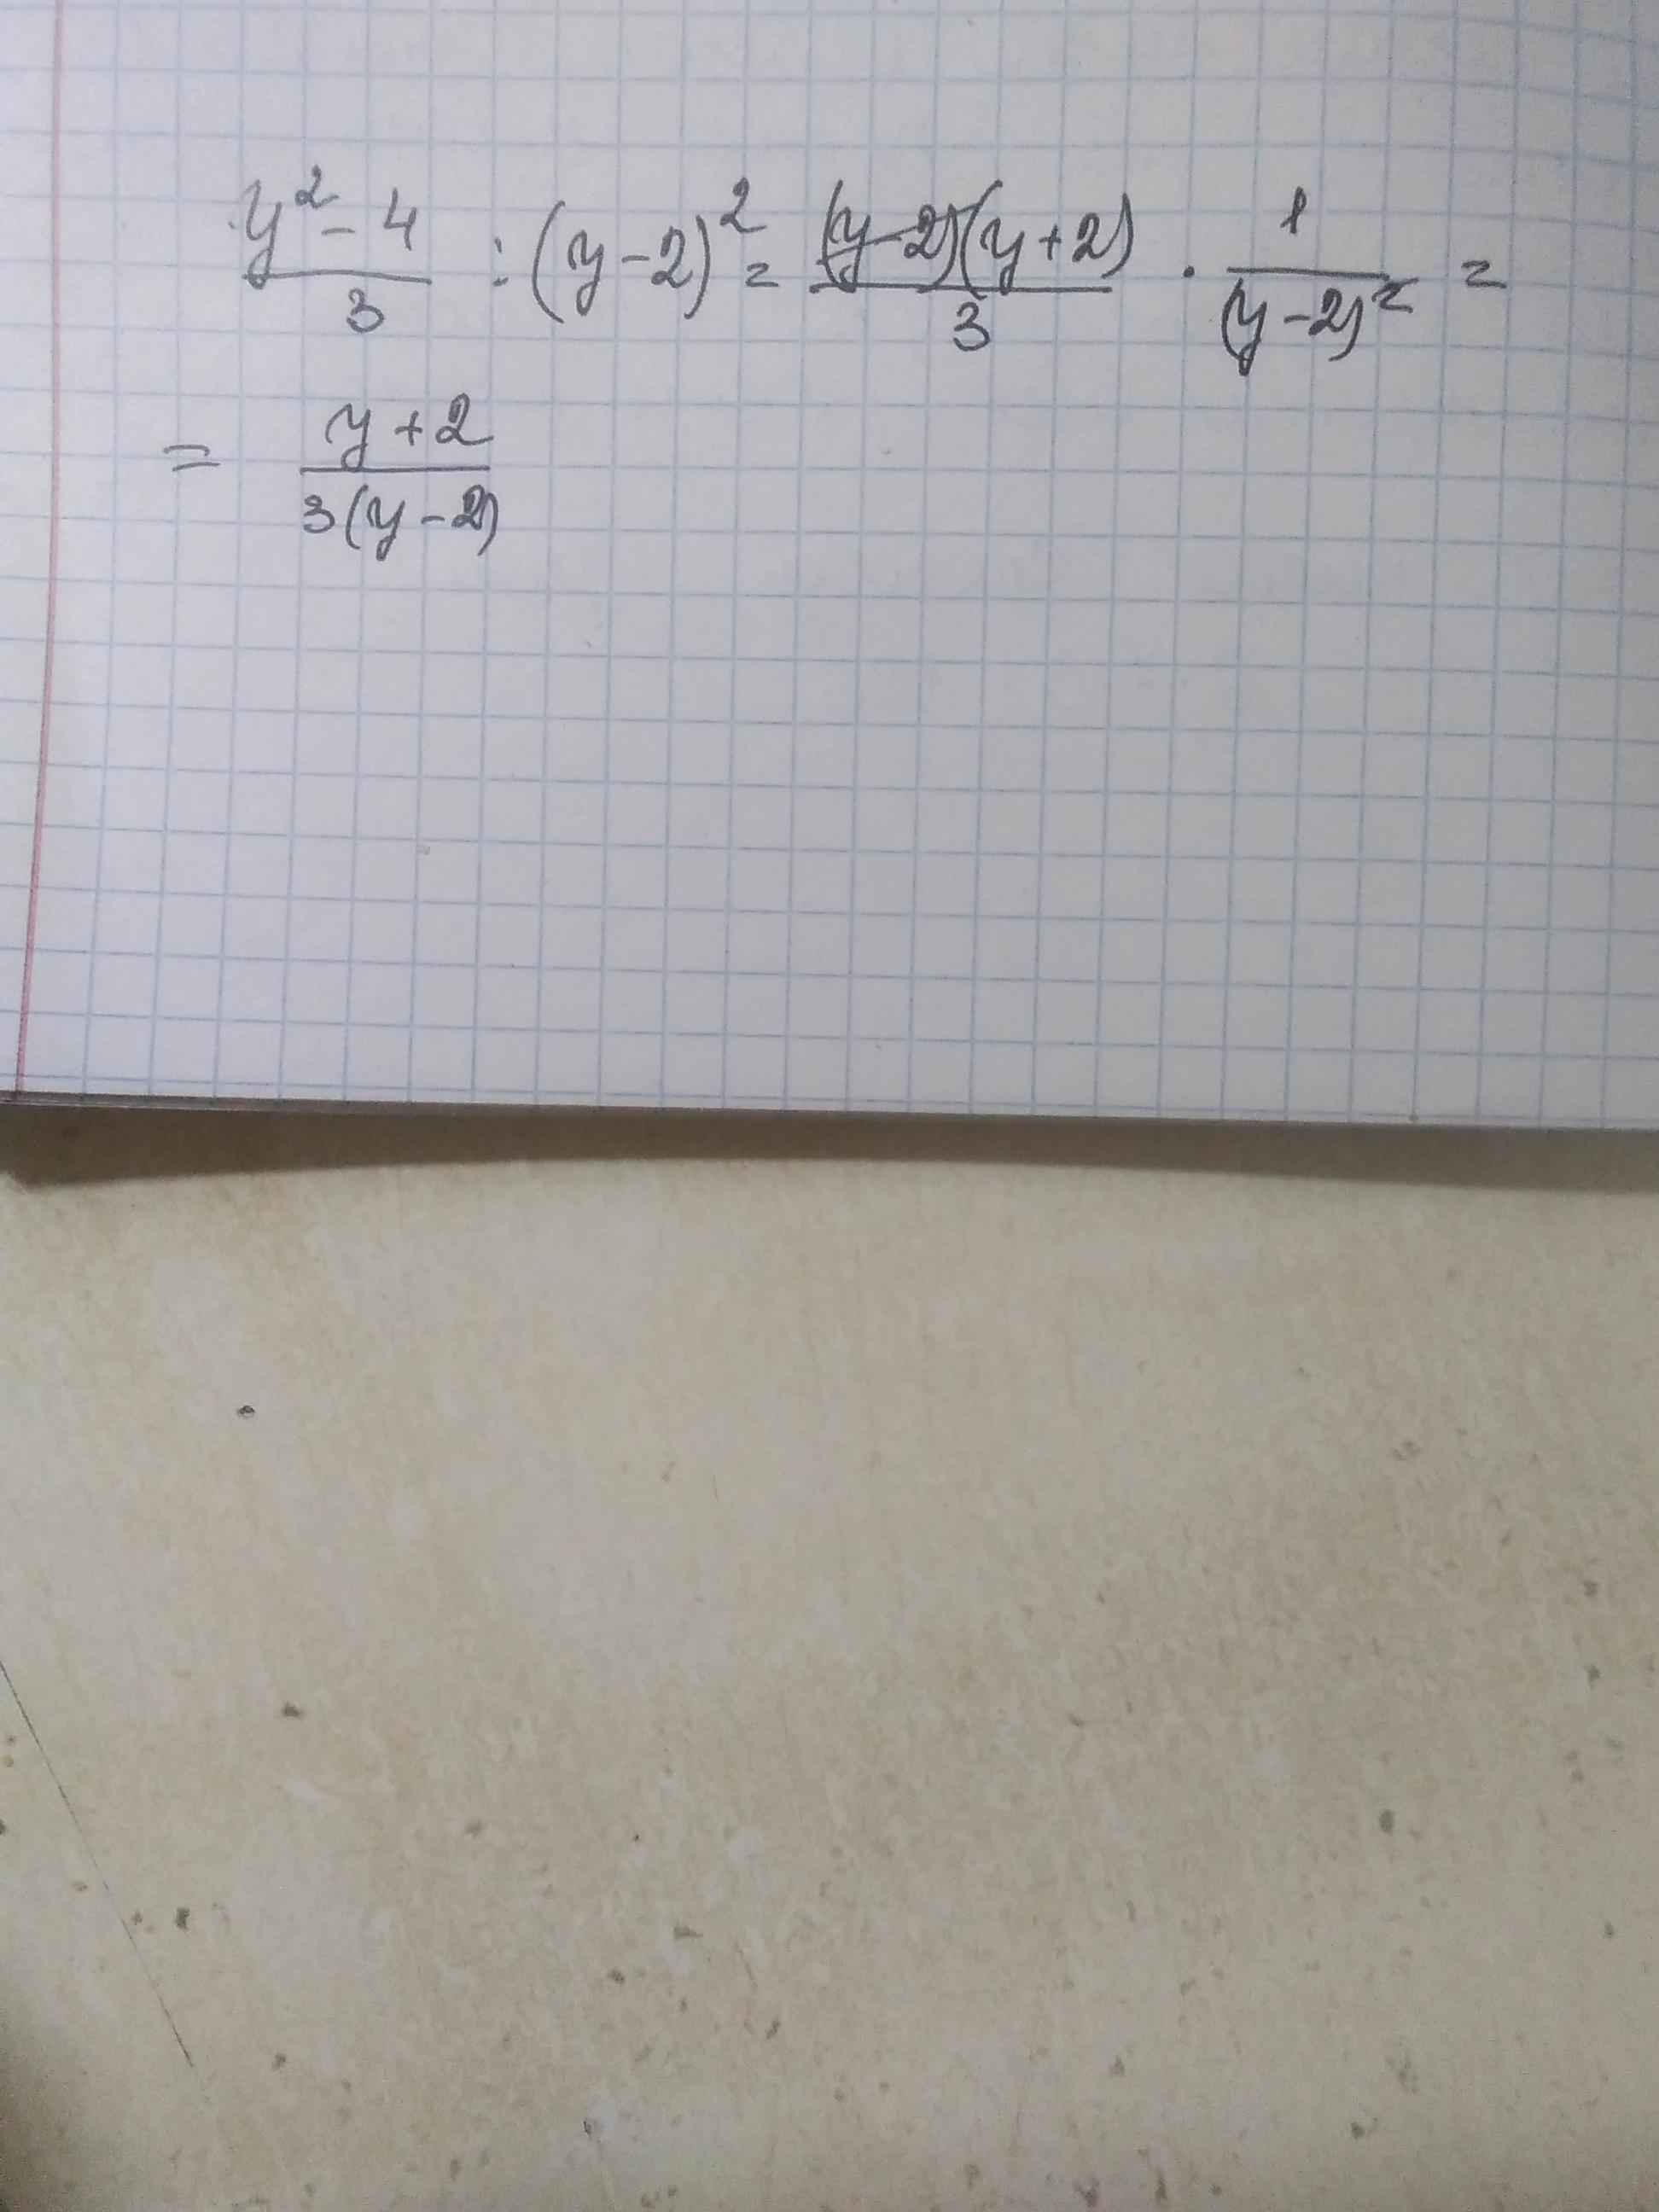 (y² - 4)/3 : (y - 2)² = (y - 2)(y + 2)/3 · 1/(y - 2)² =
= (y + 2)/(3(y - 2))